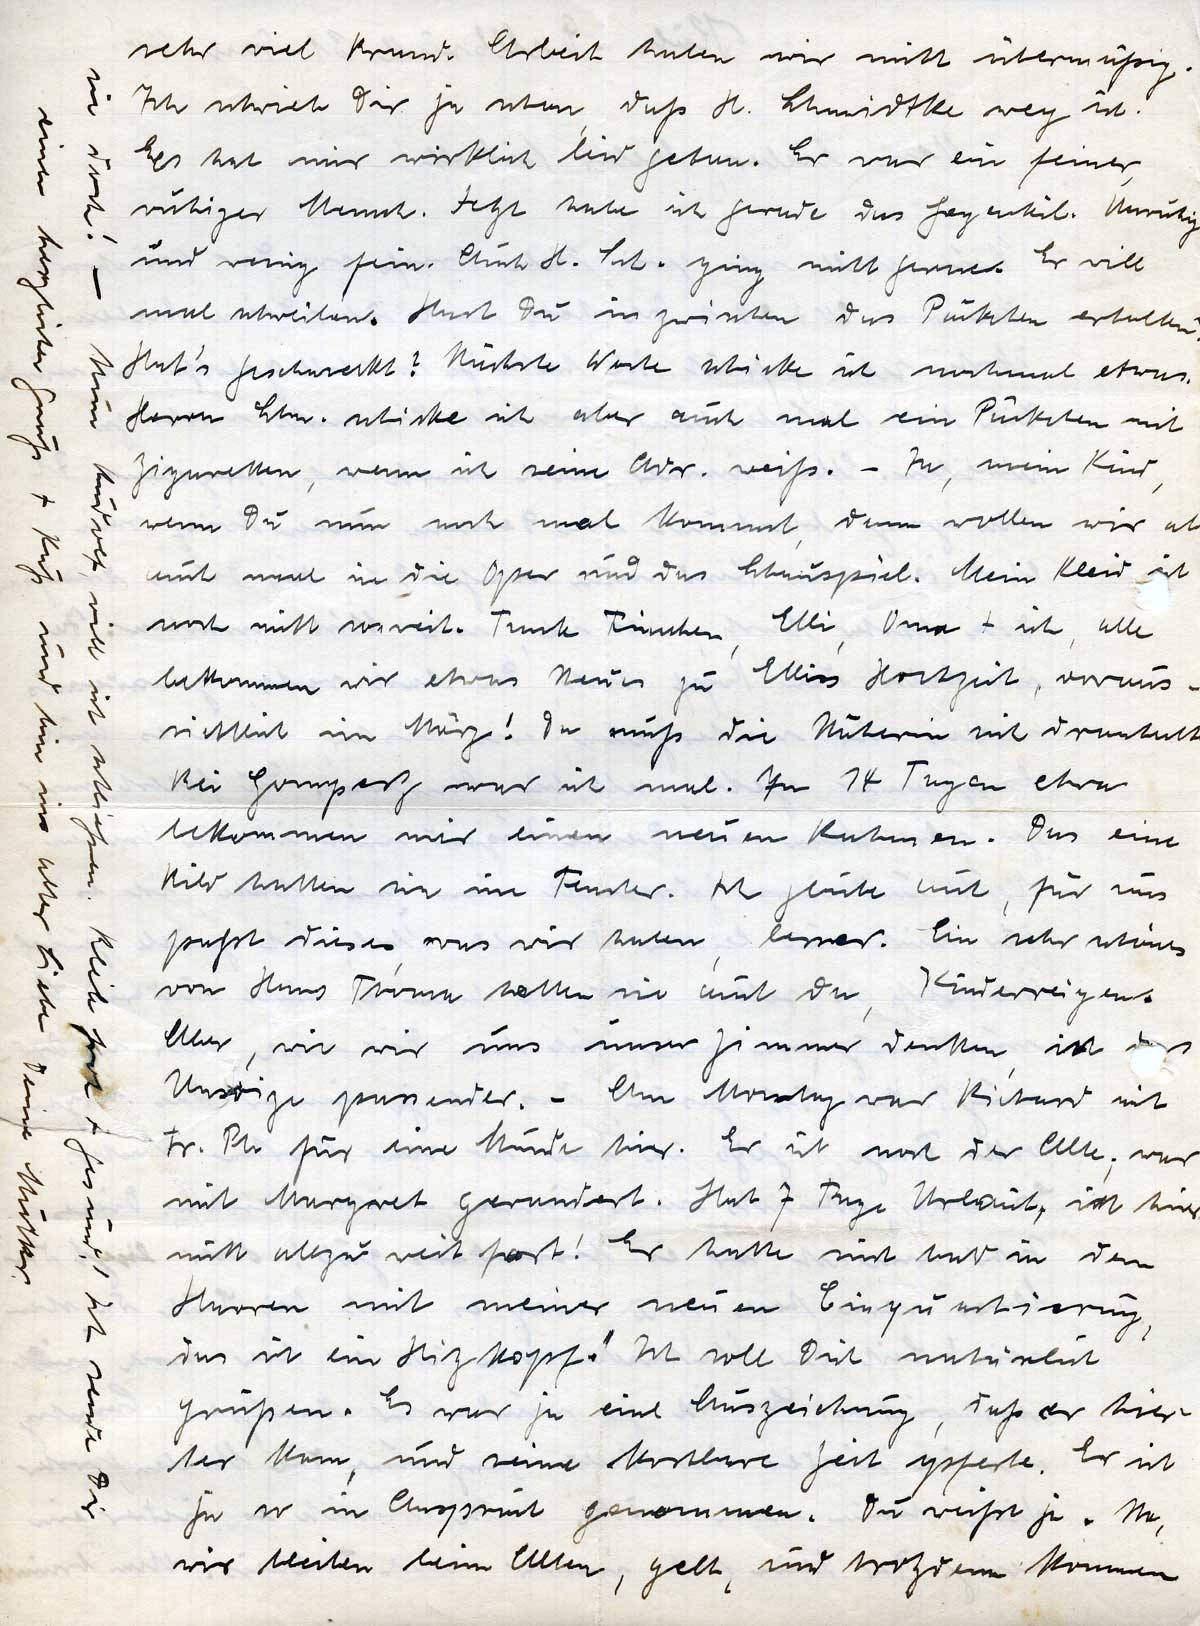 sehr viel Krund. Arbeit haben wir nicht übermäßig.
Ich schrieb Dir ja schon, daß H. Schmidtke weg ist.
Es hat mir wirklich leid getan. Er war ein feiner,
ruhiger Mensch. Jetzt habe ich gerade das Gegenteil. Unruhig
und wenig fein. Auch H. Sch. ging nicht gerne. Er will
mal schreiben. Hast Du inzwischen das Päckchen erhalten?
Hat's geschmeckt? Nächste Woche schicke ich nochmal etwas.
Herrn Schm. schicke ich aber auch mal ein Päckchen mit
Zigaretten, wenn ich seine Adr. weiß. – Ja, mein Kind,
wenn Du nun noch mal kommst, dann wollen wir ab
auch mal in die Oper und das Schauspiel. Mein Kleid ist
noch nicht soweit. Tante Tinchen, Elli, Oma + ich, alle
bekommen wir etwas Neues zu Ellis Hochzeit, voraus-
sichtlich im März! Da muß die Näherin sich dranhalt
Bei Gompertz war ich mal. In 14 Tagen etwa
bekommen wir einen neuen Rahmen. Das eine
Bild hatten sie im Fenster. Ich glaube auch, für uns
paßt dieses, was wir haben, besser. Ein sehr schönes
von Hans Thoma hatten sie auch da, Kinderreigen.
Aber, wie wir uns unser Zimmer denken, ist das
Unsrige passender. – Am Montag war Richard mit
Fr. Ph. für eine Stunde hier. Er ist noch der Alte, war
mit Margret gerandert. Hat 7 Tage Urlaub, ist hier
nicht allzu weit fort! Er hatte mich bald in den
Haaren mit meiner neuen Einquartierung,
das ist ein Hitzkopf." Ich soll Dich natürlich
grüßen. Es war ja eine Auszeichnung, daß er hier-
her kam, und seine kostbare Zeit opferte. Er ist
ja so in Anspruch genommen. Du weißt ja. Na,
wir bleiben beim Alten, gelt, und trotzdem kommen
sie durch! — Nun Rudolf, will ich schließen. Bleib froh + gesund! Ich sende Dir
einen herzlichen Gruß + Kuß und bin in alter Liebe Deine Mutter.